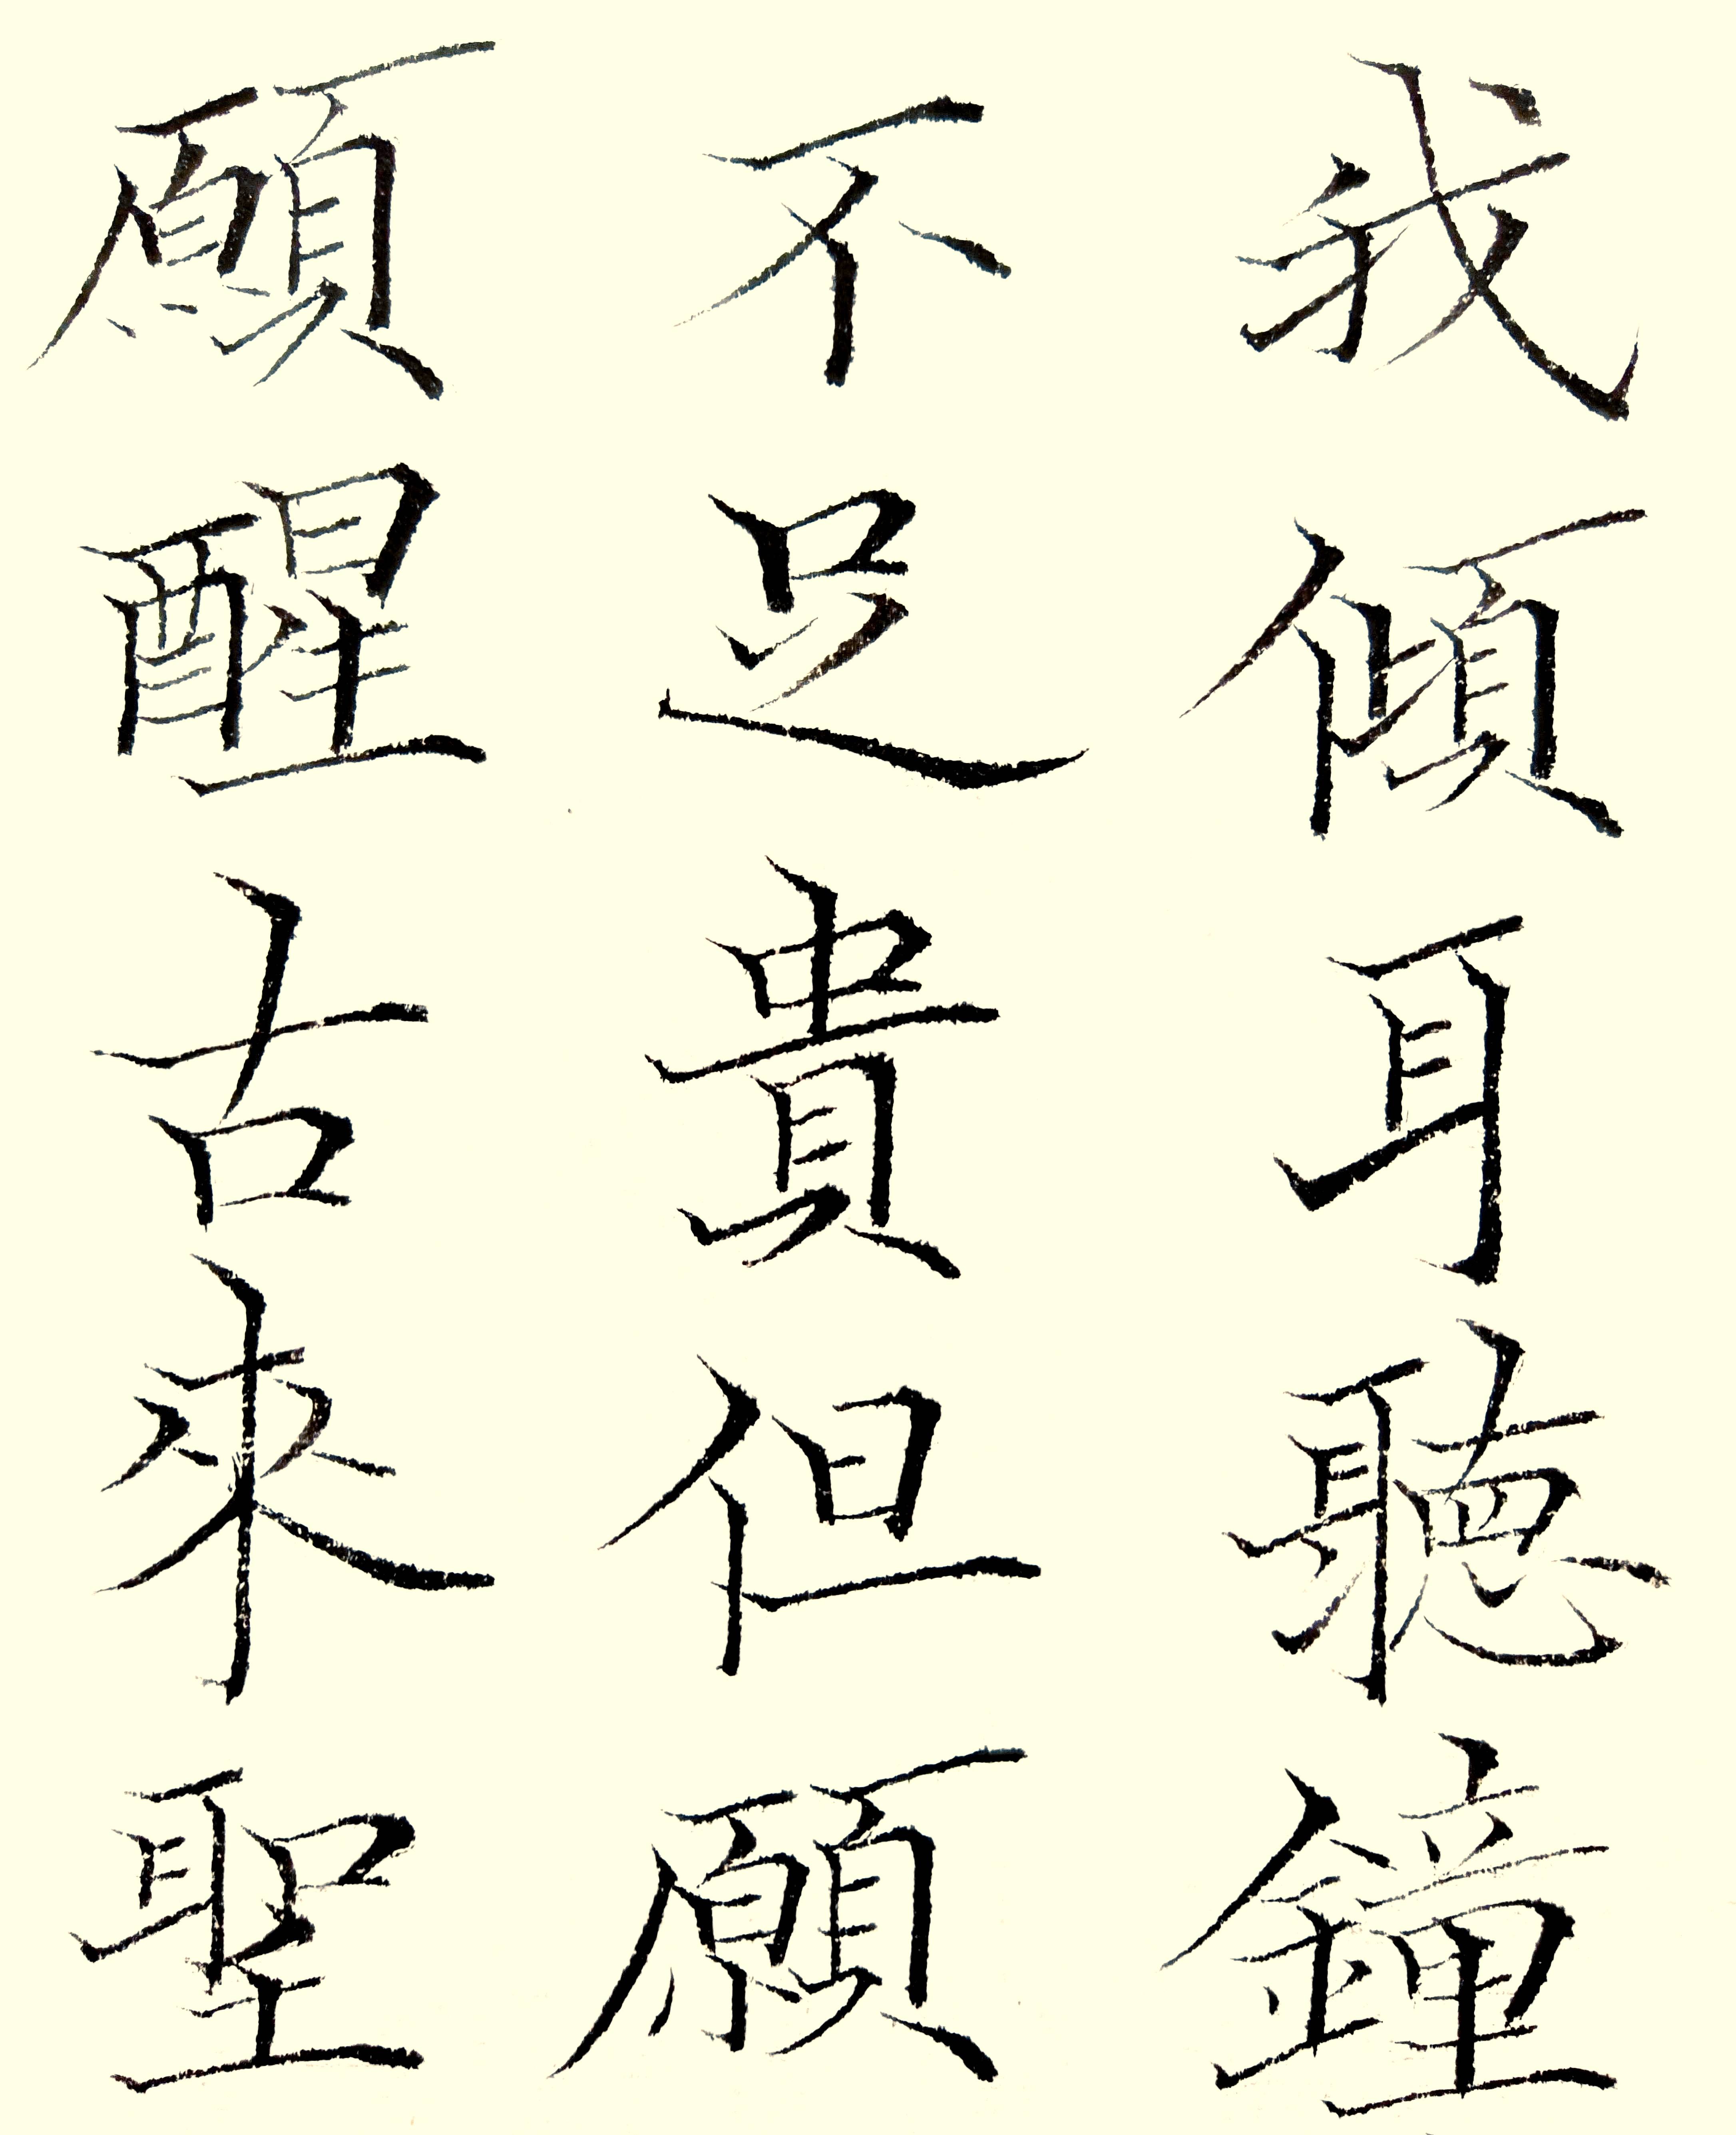 我傾耳聽鐘
不足貴但願
願醒古來聖